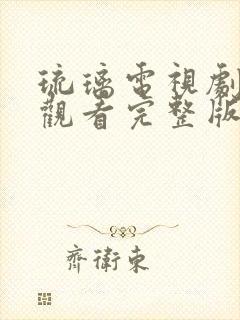 琉璃電視劇
觀看完整版
齊衛東